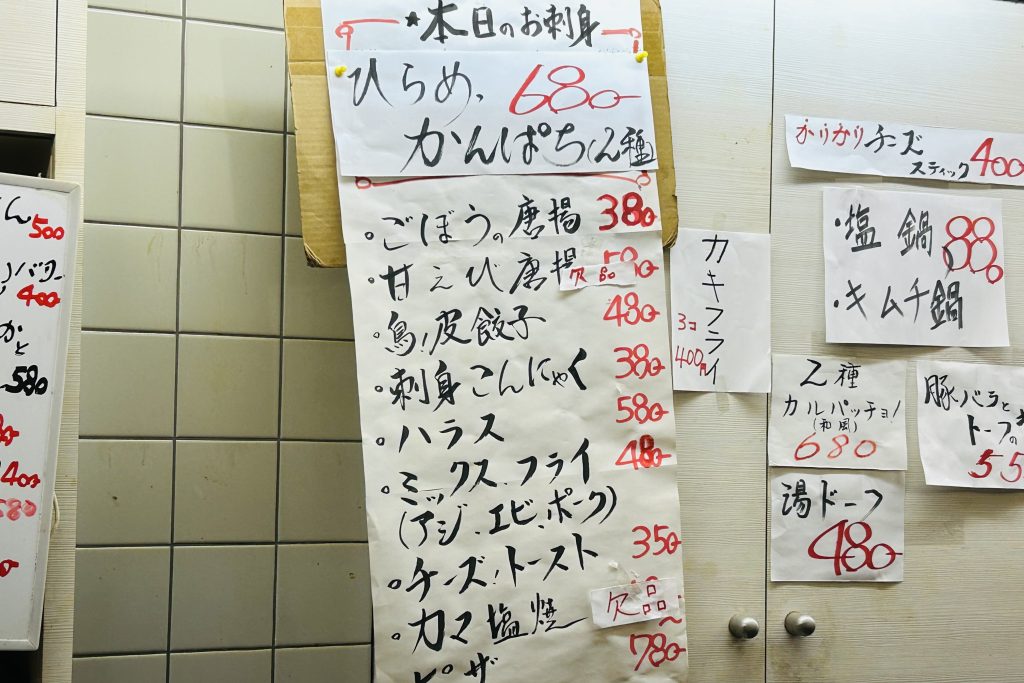 ★本日のお刺身
ひらめ、 680
かんぱち(2種
。ごぼうの唐揚 380
・甘えび唐揚 欠品 580
・鳥皮餃子 480
・刺身こんにゃく 380
。ハラス 580
。ミックスフライ 480
(アジ、エビ、ポーク)
。チーズトースト 350
・カマ塩焼 欠品
ピザ 780
カキフライ
3コ
400円
かりかりチーズ
スティック 400
・塩鍋 880
・キムチ鍋
2種
カルパッチョ
(和風)
680
湯ドーフ
480
豚バラと
トーフの
55
ん 500
バター
400
かと
580
400
580